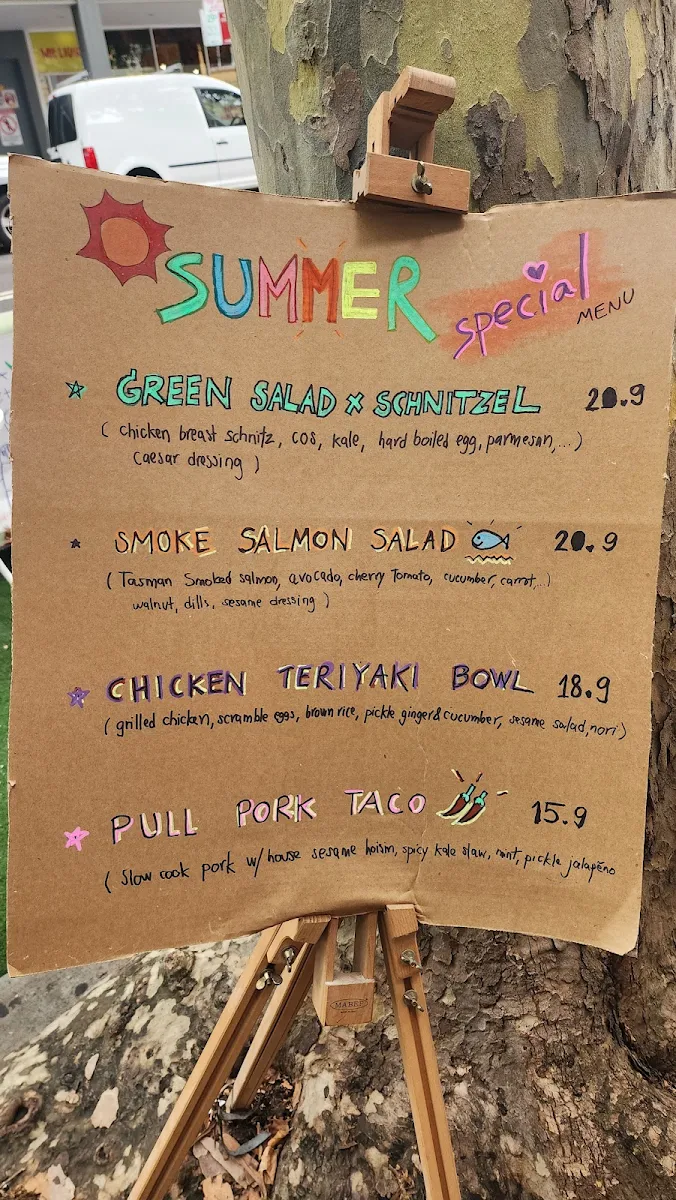 SUMMER special MENU
GREEN SALAD x SCHNITZEL 20.9
( chicken breast schnitz, cos, kale, hard boiled egg, parmesan,...)
Caesar dressing )
SMOKE SALMON SALAD 20.9
( Tasman Smoked salmon, avocado, cherry Tomato, cucumber, carrot,...)
walnut, dills, sesame dressing )
CHICKEN TERIYAKI BOWL 18.9
( grilled chicken, scramble eggs, brown rice, pickle ginger & cucumber, sesame salad, nori )
PULL PORK TACO 15.9
( Slow cook pork w/ house sesame hoisin, spicy kale slaw, mint, pickle jalapeño
MABEF